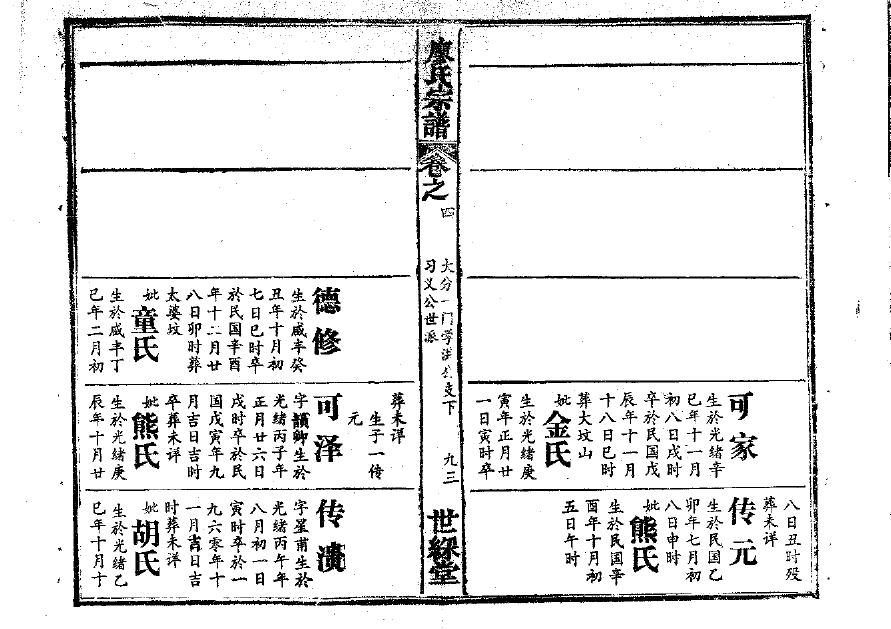 可家
生於光緒辛
巳年十一月
初八日戌時
卒於民国戊
辰年十一月
十八日巳時
葬大坟山
妣金氏
生於光緒庚
寅年正月廿
一日寅時卒
八日丑时殁
葬未详
传元
生於民国乙
卯年七月初
八日申時
妣熊氏
生於民国辛
酉年十月初
五日午时
廖氏宗譜
卷之四
大分一门学支下
习义公世派
九三
世綵堂
德修
生於咸丰癸
丑年十月初
七日巳時卒
於民国辛酉
年十二月廿
八日卯時葬
太婆坟
妣童氏
生於咸丰丁
巳年二月初
葬未详
生子一传
元
可泽
字卿生於
光緒丙子年
正月廿六日
戌時卒於民
国戊寅年九
月吉日吉時
卒葬未详
妣熊氏
生於光緒庚
辰年十月廿
传
字星甫生於
光緒丙午年
八月初一日
寅時卒於一
九六零年十
一月日吉
時葬未详
妣胡氏
生於光緒乙
巳年十月十